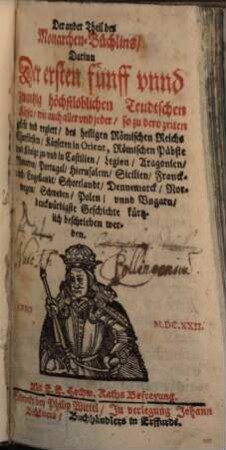 Der ander Theil des
Monarchen-Büchlins/
Darinn
Der ersten fünff vnnd
zwantzig höchstloblichen Teudtschen
Käyser/ wie auch aller vnd jeder/ so zu dero zeiten
gelebt vnd regiert/ des heiligen Römischen Reichs
Churfürsten/ Käyseren in Orient, Römischen Päbste
vnd Könige zu vnd in Castilien/ Legion/ Arragonien/
Navarra/ Portugal/ Hierusalem/ Sicilien/ Franck-
reich/ Engelland/ Schottlande/ Dennemarck/ Nor-
wegen/ Schweden/ Polen/ vnnd Vngarn/
denckwürdigste Geschichte kürtz-
lich beschrieben wer-
den.
M.DC.XXII.
Mit E. E. Hochw. Raths Befreyung.
Gedruckt bey Philip Wittel/ In verlegung Johann
Birckners/ Buchhändlers in Erffurdt.